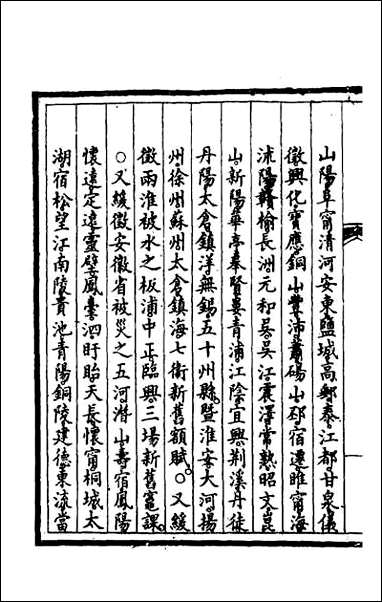 山陽阜甯清河安東鹽城高郵泰江都甘泉儀
徵興化寶應銅山豐沛蕭碭山邳宿遷睢甯海
沭陽贛榆長洲元和吳吳江震澤常熟昭文崑
山新陽華亭奉賢婁青浦江陰宜興荆溪丹徒
丹陽太倉鎮洋無錫五十州縣暨淮安大河揚
州徐州蘇州太倉鎮海七衛新舊額賦○又緩
徵兩淮被水之板浦中正臨興三場新舊竈課
○又緩徵安徽省被災之五河潛山壽宿鳳陽
懷遠定遠靈璧鳳臺泗盱眙天長懷甯桐城太
湖宿松望江南陵貴池青陽銅陵建德東流當